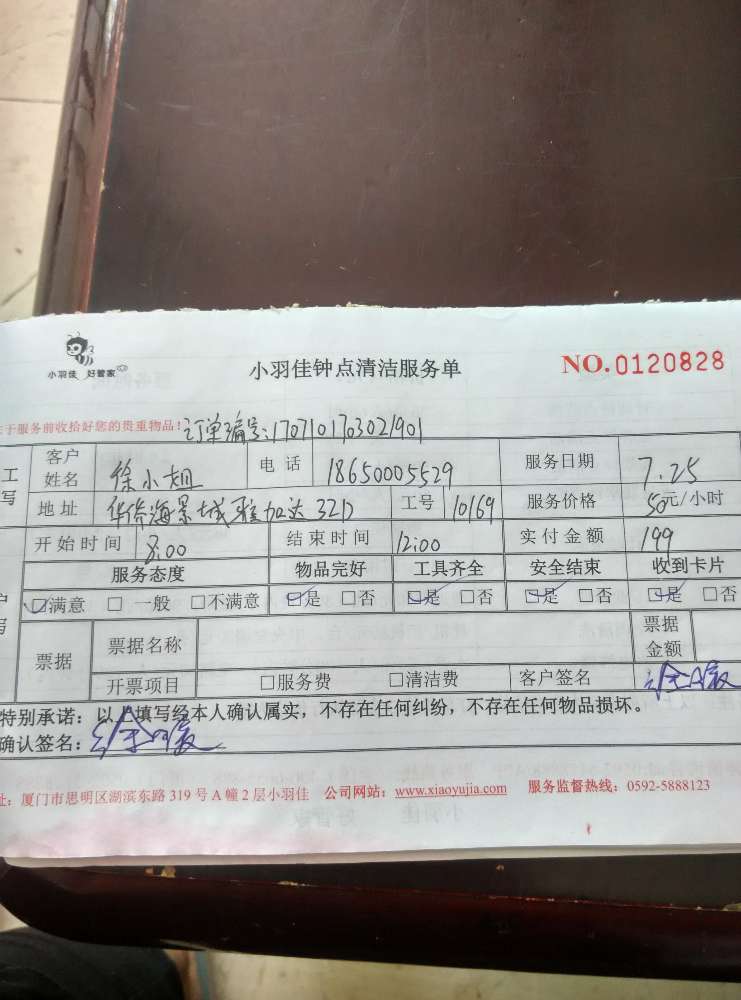 小羽佳 好管家
小羽佳钟点清洁服务单
NO.0120828
于服务前收拾好您的贵重物品!
订单编号:1707101703021901
工
写
客户姓名 徐小姐 电话 18650005529 服务日期 7.25
地址 华侨海景城雅加达32D 工号 10169 服务价格 50元/小时
开始时间 8:00 结束时间 12:00 实付金额 199
服务态度 物品完好 工具齐全 安全结束 收到卡片
☑满意 □一般 □不满意 ☑是 □否 ☑是 □否 ☑是 □否 ☑是 □否
票据 票据名称 票据金额
开票项目 □服务费 □清洁费 客户签名
特别承诺:以上填写经本人确认属实,不存在任何纠纷,不存在任何物品损坏。
确认签名:
址:厦门市思明区湖滨东路319号A幢2层小羽佳 公司网站:www.xiaoyujia.com 服务监督热线:0592-5888123